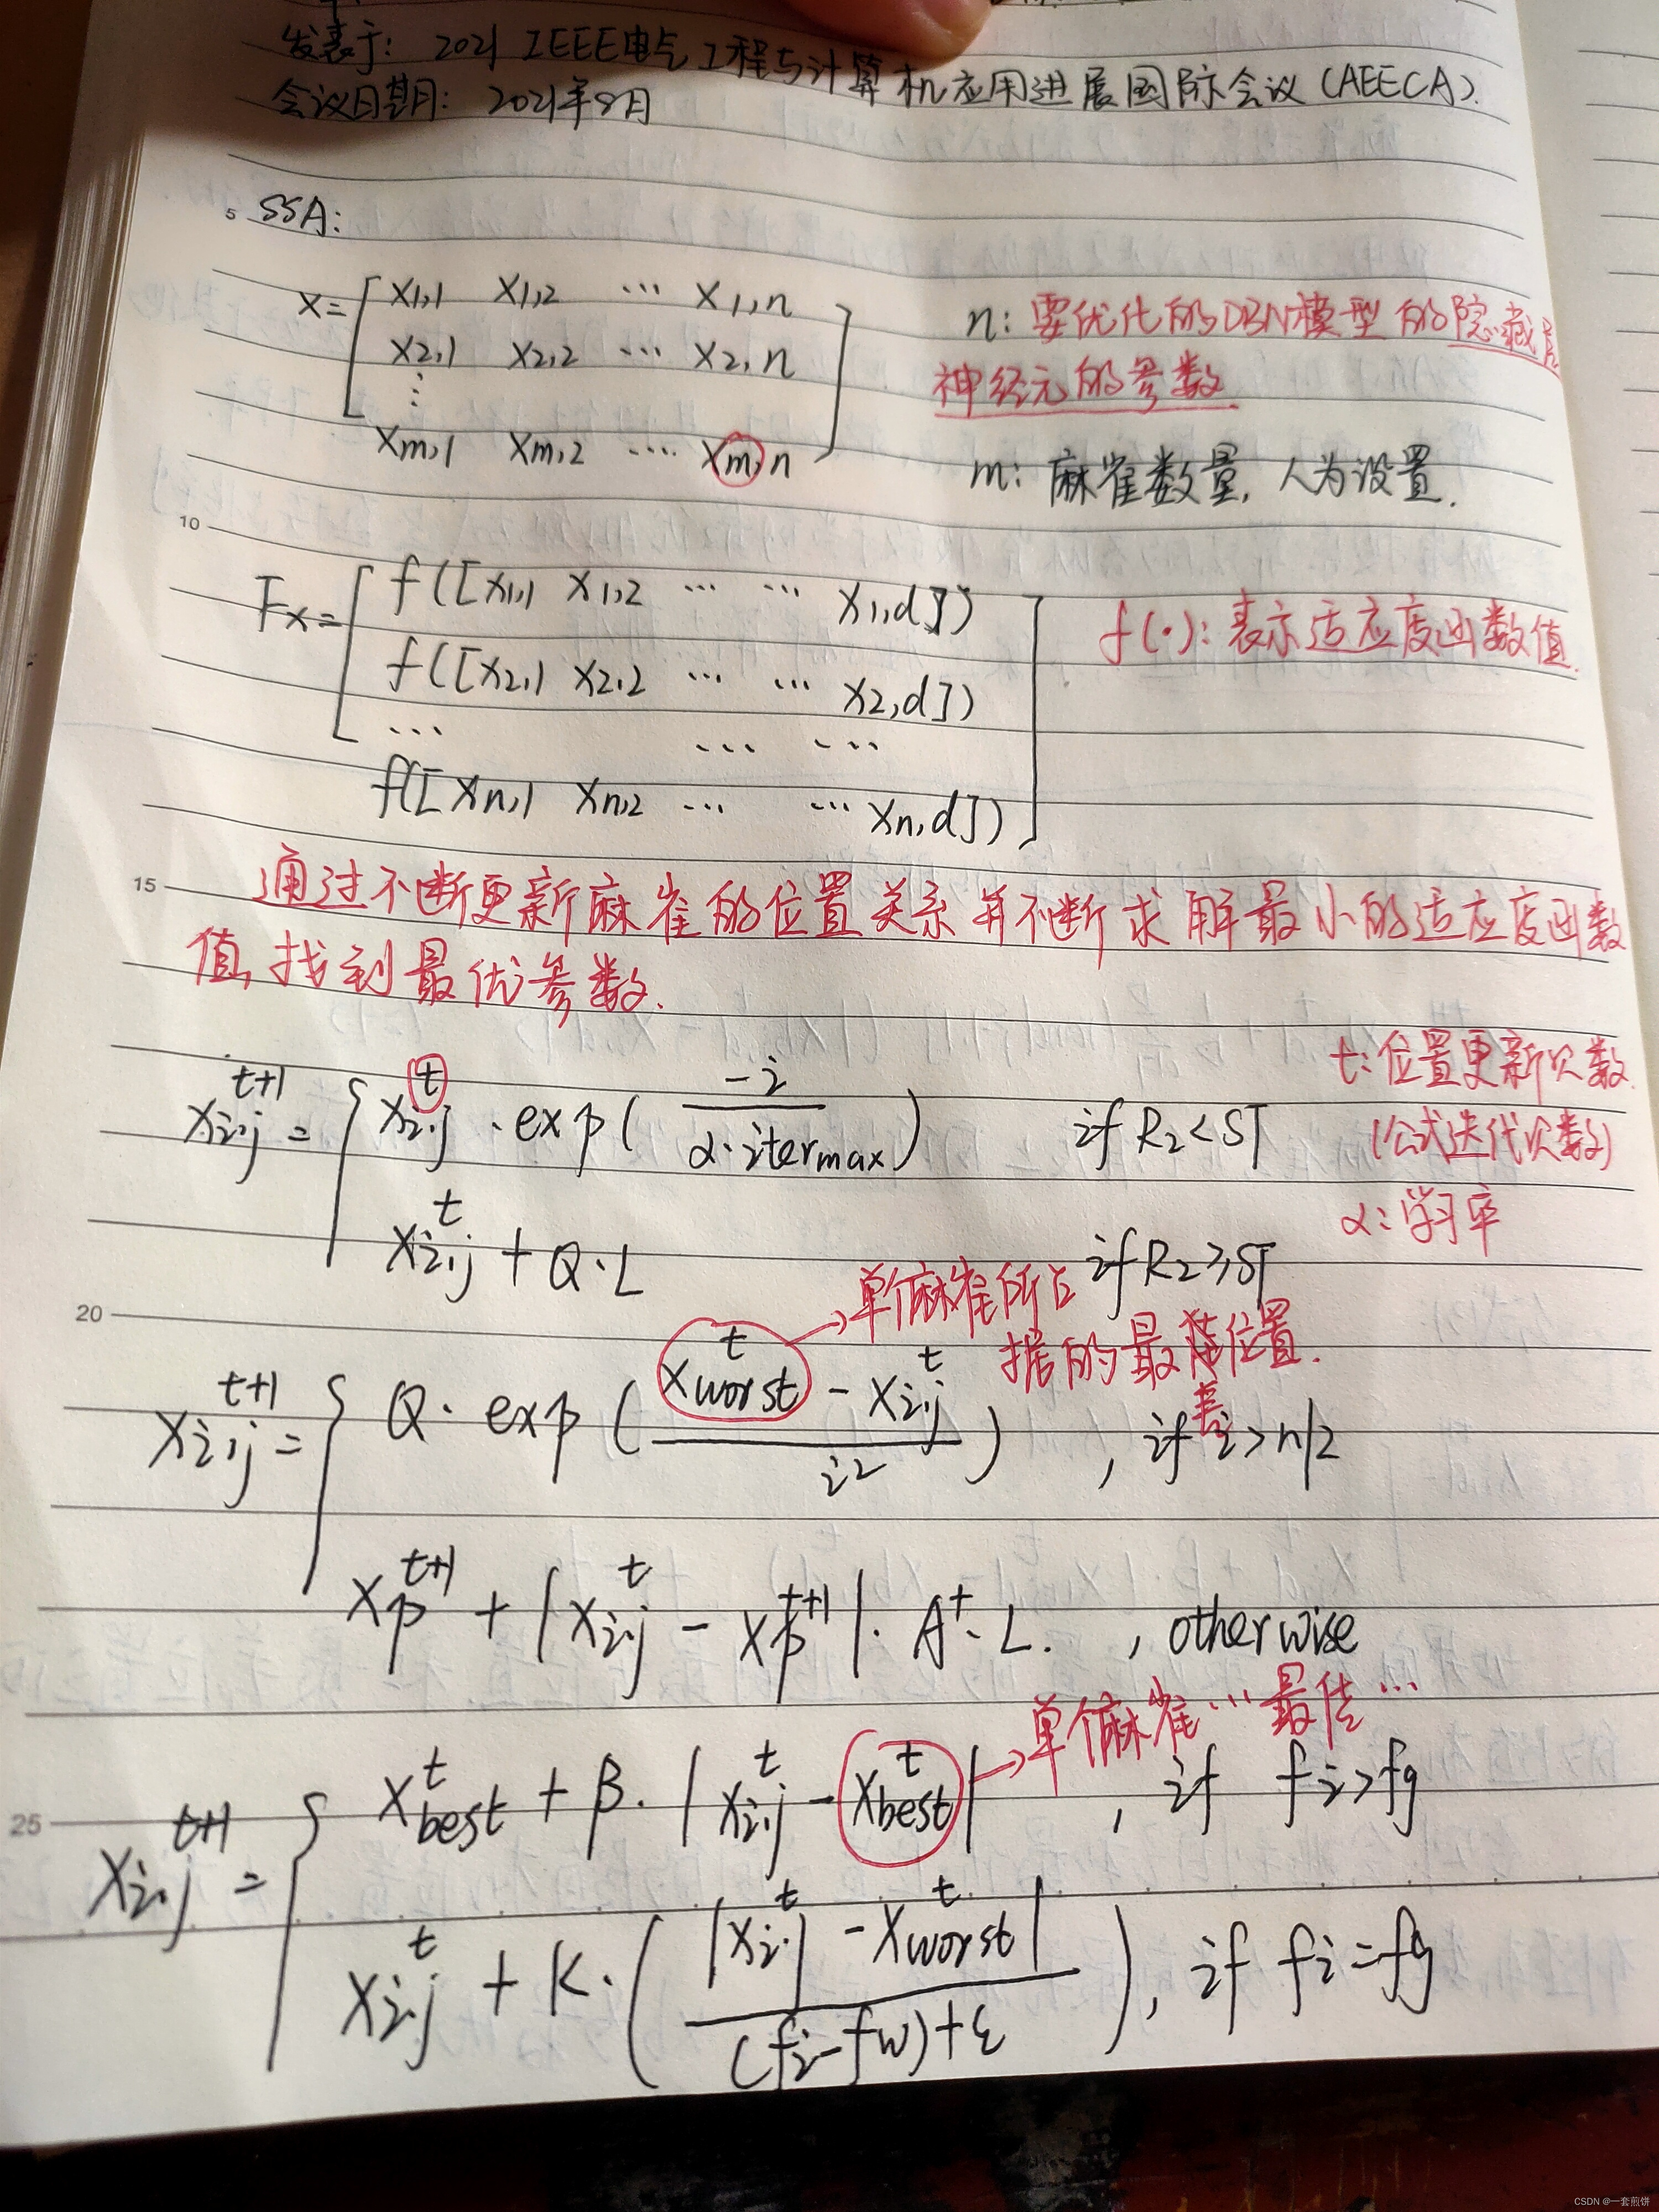 发表于: 2021 IEEE电气工程与计算机应用进展国际会议 (AEECA).
会议日期: 2021年8月
5 SSA:
X= [ X1,1 X1,2 ... X1,n
X2,1 X2,2 ... X2,n
⋮
Xm,1 Xm,2 .... Xm,n ]
n: 要优化的DBN模型的隐藏层
神经元的参数
m: 麻雀数量, 人为设置.
10
Fx= [ f([X1,1 X1,2 ... ... X1,d])
f([X2,1 X2,2 ... ... X2,d])
... ... ...
f([Xn,1 Xn,2 ... ... Xn,d]) ]
f(·): 表示适应度函数值.
15 通过不断更新麻雀的位置关系并不断求解最小的适应度函数
值, 找到最优参数.
X_{i,j}^{t+1} = { X_{i,j}^{t} · exp( -i / (α·iter_max) ) if R2<ST
X_{i,j}^{t} + Q·L if R2≥ST
t: 位置更新次数
(公式迭代次数)
α: 学习率
20
单个麻雀所占
据的最差位置.
X_{i,j}^{t+1} = { Q· exp ( (X_{worst}^{t} - X_{i,j}^{t}) / i² ) , if i>n/2
X_{p}^{t+1} + |X_{i,j}^{t} - X_{p}^{t+1}|· A^{+}· L. , otherwise
单个麻雀...最佳...
25
X_{i,j}^{t+1} = { X_{best}^{t} + β· |X_{i,j}^{t} - X_{best}^{t}| , if fi>fg
X_{i,j}^{t} + K·( |X_{i,j}^{t} - X_{worst}^{t}| / ((fi-fw)+ε) ), if fi=fg
CSDN @一套煎饼